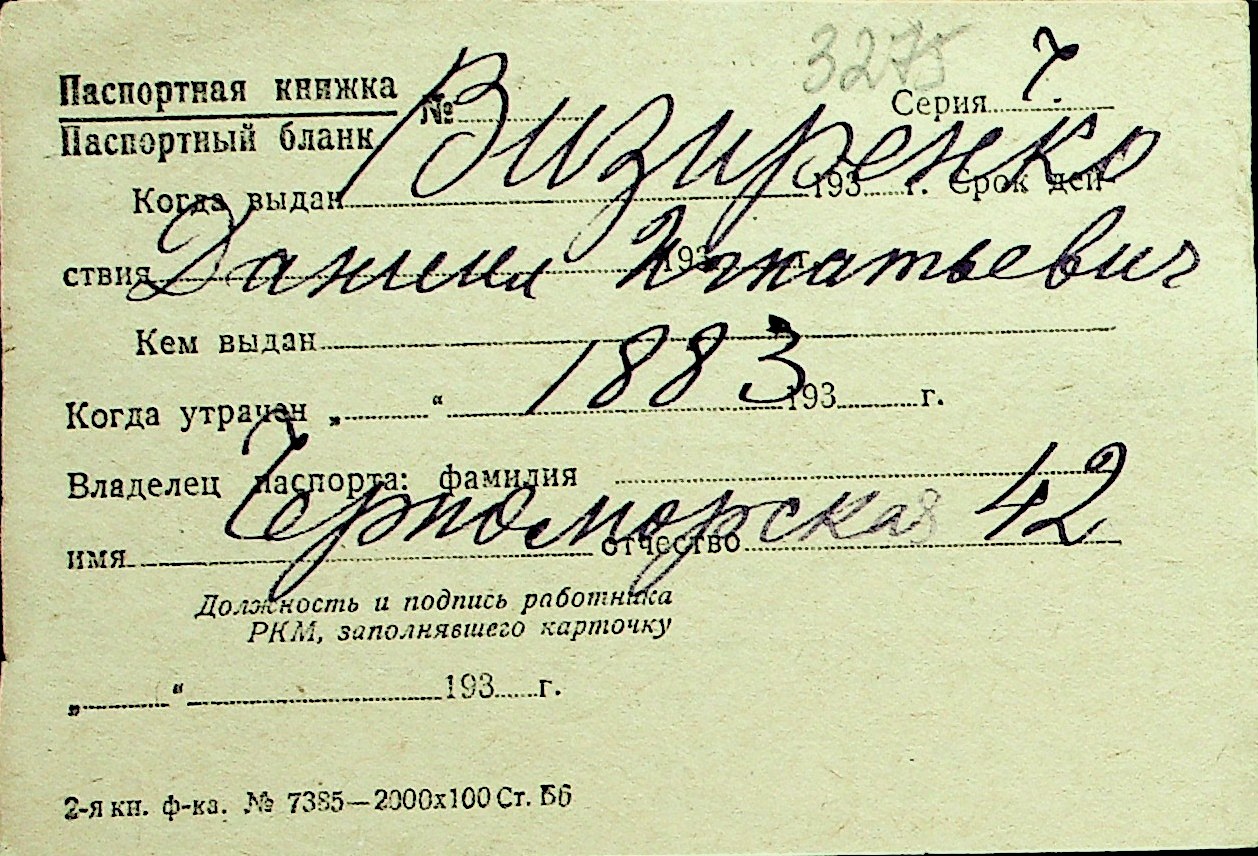 3275
Паспортная книжка
Паспортный бланк
№ Серия 7.
Визиренко
Когда выдан 193 г. Срок дей-
Даниил Игнатьевич
ствия 193 г.
Кем выдан
1883
Когда утрачен „ “ 193 г.
Владелец паспорта: фамилия
Черноморская 42
имя отчество
Должность и подпись работника
РКМ, заполнявшего карточку
„ “ 193 г.
2-я кн. ф-ка. № 7385—2000х100 Ст. Б6